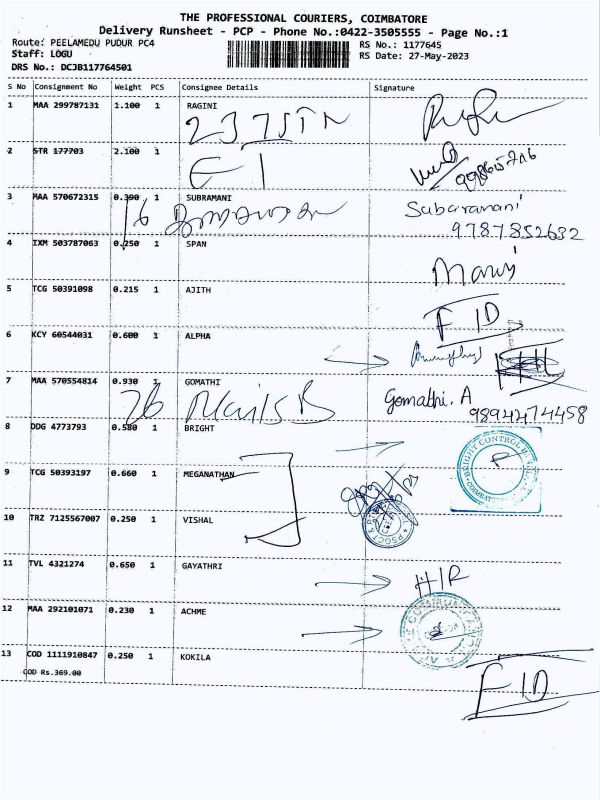 THE PROFESSIONAL COURIERS, COIMBATORE
Delivery Runsheet - PCP - Phone No.:0422-3505555 - Page No.:1
Route: PEELAMEDU PUDUR PC4
Staff: LOGU
DRS No.: DCJB117764501
RS No.: 1177645
RS Date: 27-May-2023
S No Consignment No Weight PCS Consignee Details Signature
1 MAA 299787131 1.100 1 RAGINI
237
2 STR 177703 2.100 1
3 MAA 570672315 0.390 1 SUBRAMANI
16
Subaramani
9787852632
4 IXM 503787063 0.250 1 SPAN
5 TCG 50391098 0.215 1 AJITH
FID
6 KCY 60544031 0.600 1 ALPHA
7 MAA 570554814 0.930 1 GOMATHI
26
Gomathi. A
9894274458
8 DDG 4773793 0.580 1 BRIGHT
BRIGHT CONTROL
9 TCG 50393197 0.660 1 MEGANATHAN
10 TRZ 7125567007 0.250 1 VISHAL
11 TVL 4321274 0.650 1 GAYATHRI
12 MAA 292101071 0.230 1 ACHME
13 COD 1111910847 0.250 1 KOKILA
COD Rs.369.00
FID